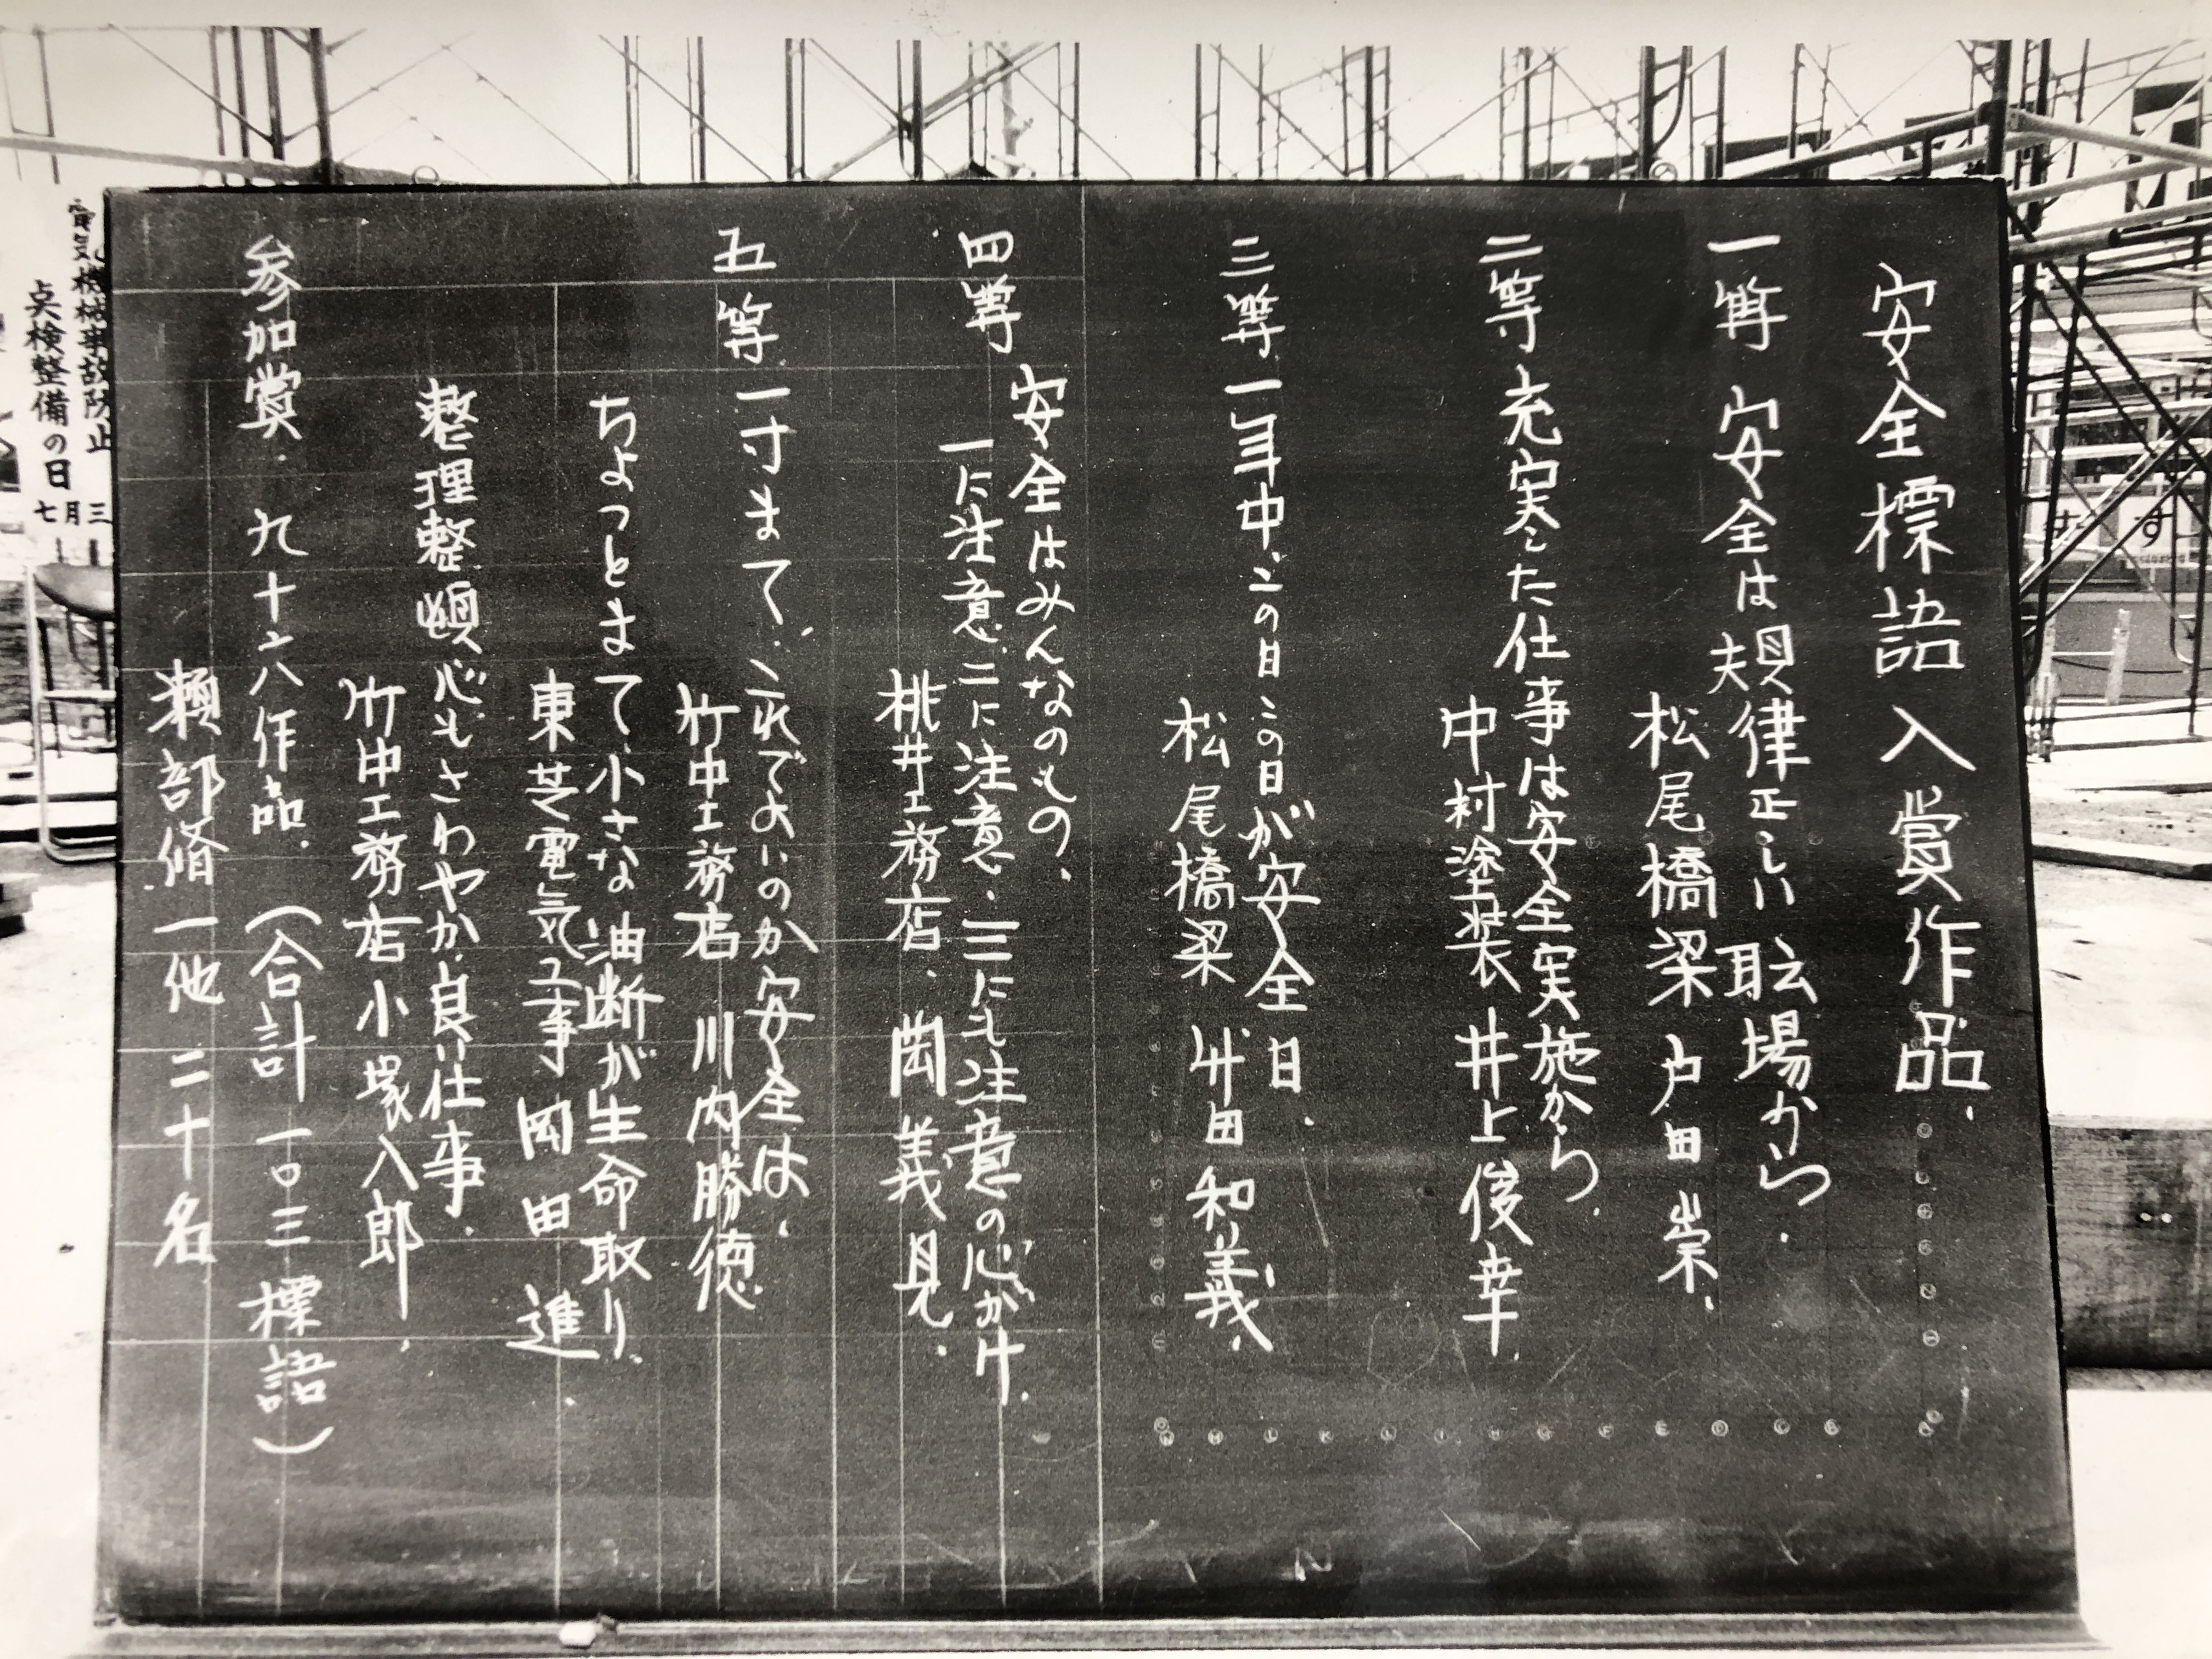 安全標語 入賞作品.
一等 安全は規律正しい職場から.
松尾橋梁 戸田 崇.
二等 充実した仕事は安全実施から.
中村塗装 井上 俊幸.
三等 一年中、この日この日が安全日.
松尾橋梁 廾田 和義.
四等 安全はみんなのもの、
一に注意.二に注意.三にも注意の心がけ.
桃井工務店.岡 義見.
五等 一寸まて、これでよいのか安全は.
竹中工務店 川内勝徳
ちょっとまて小さな油断が生命取り.
東芝電気工事 岡田 進.
整理整頓心もさわやか良い仕事.
竹中工務店 小塚八郎.
参加賞. 九十六作品. (合計 一〇三標語)
瀬部脩一他 二十名
電気機械事故防止
点検整備の日
七月三
す